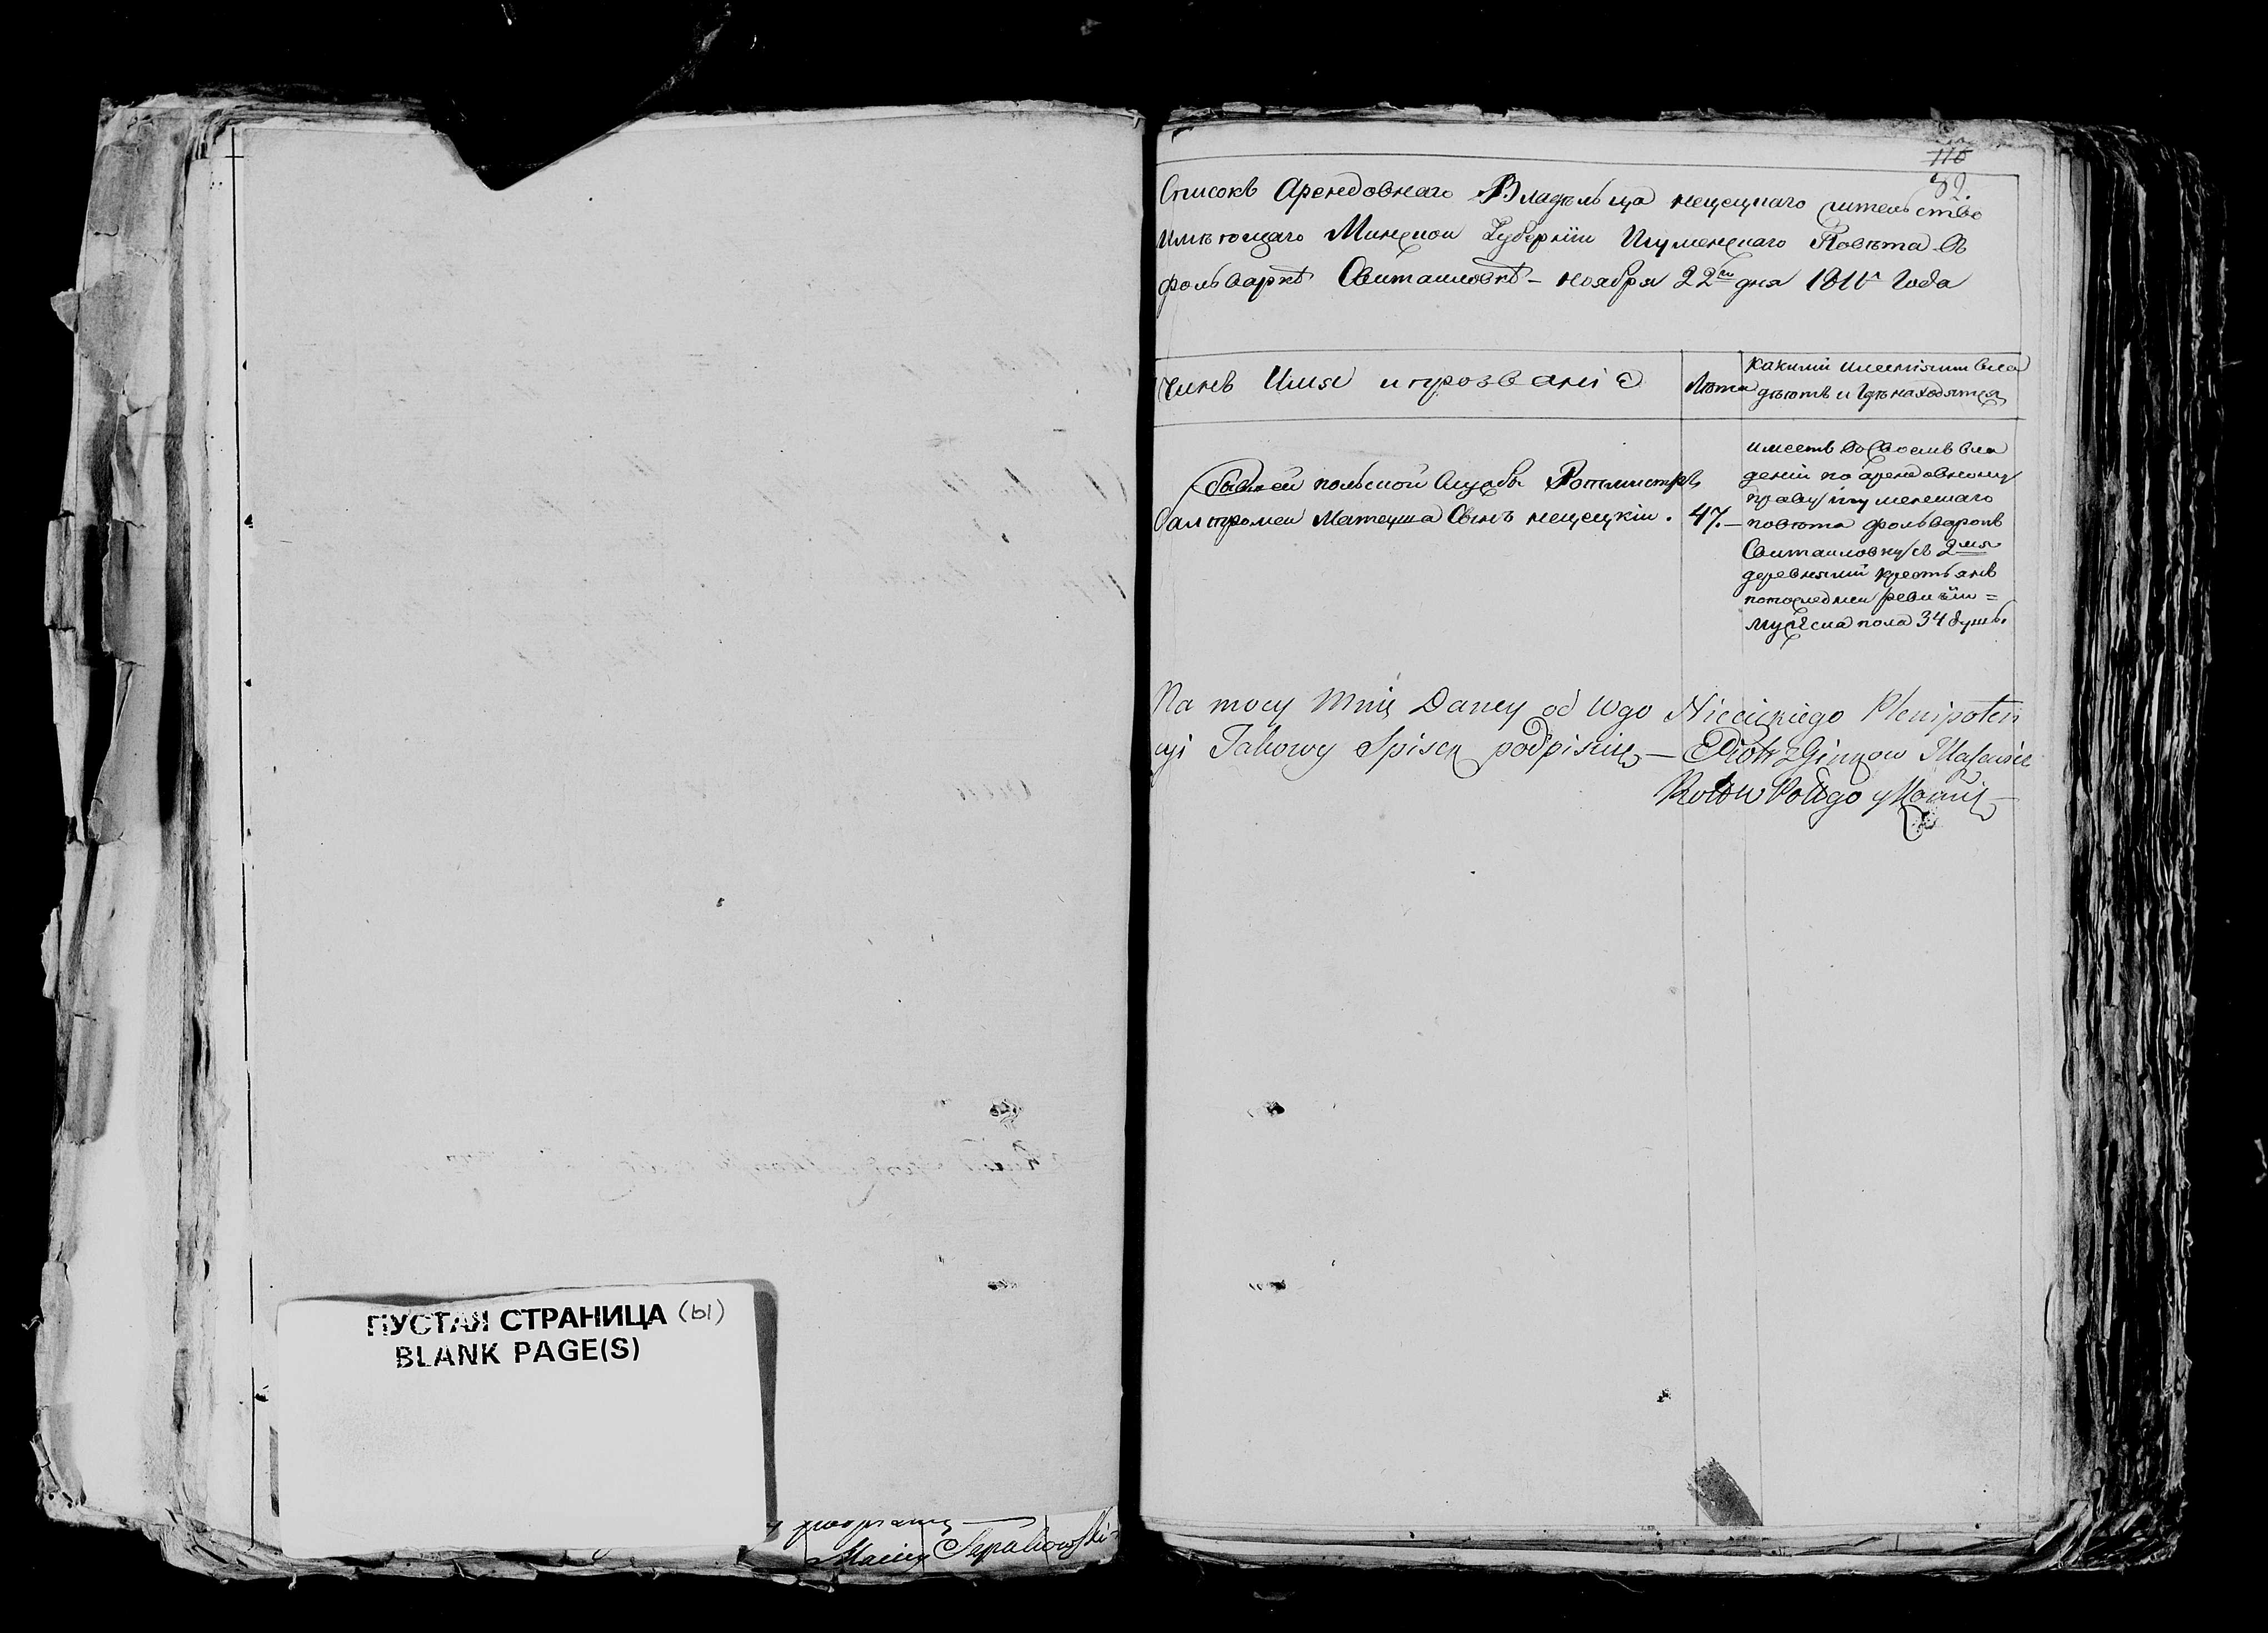 ПУСТАЯ СТРАНИЦА (ы)
BLANK PAGE(S)
Maciey
110
Списокъ Арендовнаго Владѣльца нецецкаго жительство
имѣющаго Минской Губернїи Игуменскаго Повѣта въ
фольваркѣ Свиталовкѣ - ноября 22го дня 1811 Года
Чинъ Имя и прозваніе
Лѣта
какими имениями вла
дѣютъ и Гдѣ находятся
Бывшей польской Службы Ротмистръ
Балтромей Матеуша Сынъ нецецкій.
47.
имеетъ во Своемъ вла
дении по арендовному
праву игуменскаго
повѣта фольваркъ
Свиталовку съ 2мя
деревнями крестьянъ
по последней ревизїи =
мужска пола 34 душъ.
Na mocy Mnie Daney od Wgo Niecieckiego Plenipoten
cyi Takowy Spisek podpisuię — Piotr